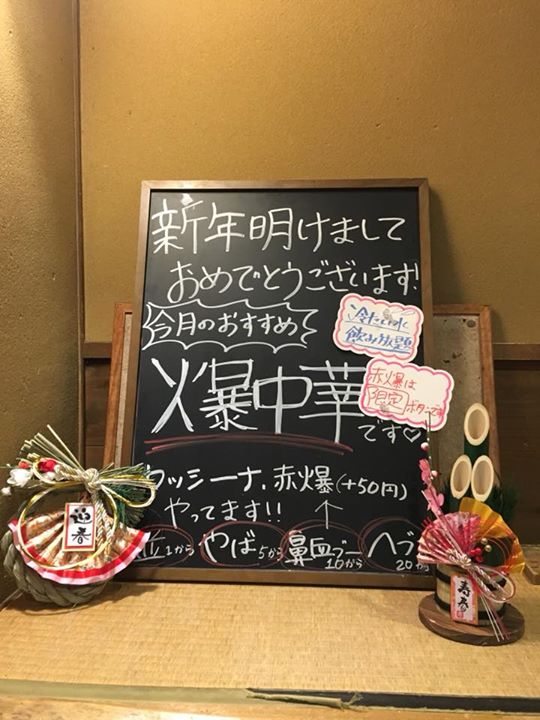 新年明けまして
おめでとうございます!
今月のおすすめ
冷たい水
飲み放題
爆中華
です♡
赤爆は
限定ボタンです
ウッシーナ、赤爆(+50円)
やってます!!
並1から やば5から 鼻血ブー10から ヘブ
20
迎春
寿春